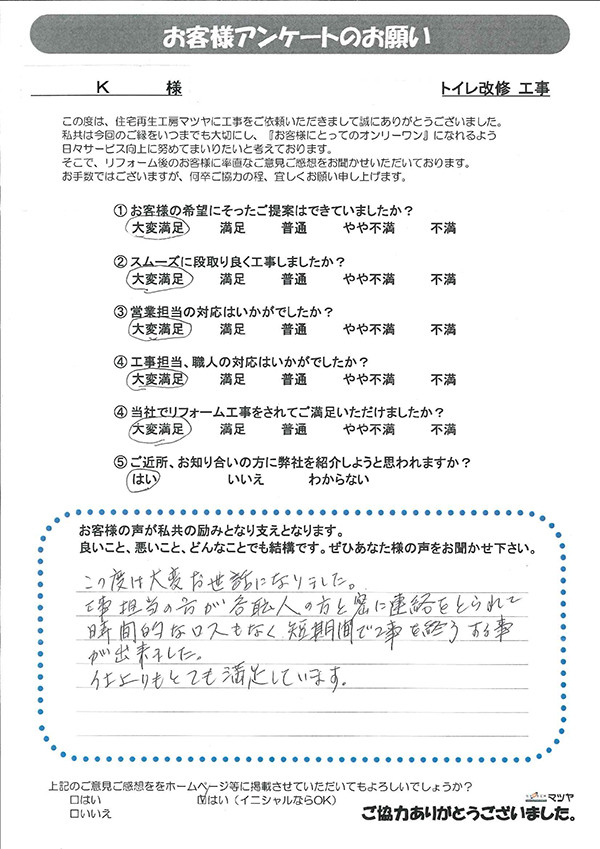 お客様アンケートのお願い
K 様 トイレ改修 工事
この度は、住宅再生工房マツヤに工事をご依頼いただきまして誠にありがとうございました。
私共は今回のご縁をいつまでも大切にし、『お客様にとってのオンリーワン』になれるよう
日々サービス向上に努めてまいりたいと考えております。
そこで、リフォーム後のお客様に率直なご意見ご感想をお聞かせいただいております。
お手数ではございますが、何卒ご協力の程、宜しくお願い申し上げます。
① お客様の希望にそったご提案はできていましたか？
大変満足 満足 普通 やや不満 不満
② スムーズに段取り良く工事しましたか？
大変満足 満足 普通 やや不満 不満
③ 営業担当の対応はいかがでしたか？
大変満足 満足 普通 やや不満 不満
④ 工事担当、職人の対応はいかがでしたか？
大変満足 満足 普通 やや不満 不満
④ 当社でリフォーム工事をされてご満足いただけましたか？
大変満足 満足 普通 やや不満 不満
⑤ ご近所、お知り合いの方に弊社を紹介しようと思われますか？
はい いいえ わからない
お客様の声が私共の励みとなり支えとなります。
良いこと、悪いこと、どんなことでも結構です。ぜひあなた様の声をお聞かせ下さい。
この度は大変お世話になりました。
工事担当の方が各職人の方と密に連絡をとられて
時間的なロスもなく短期間で工事を終うする事
が出来ました。
仕上りもとても満足しています。
上記のご意見ご感想ををホームページ等に掲載させていただいてもよろしいでしょうか？
□はい ☑はい（イニシャルならOK）
□いいえ
マツヤ
ご協力ありがとうございました。